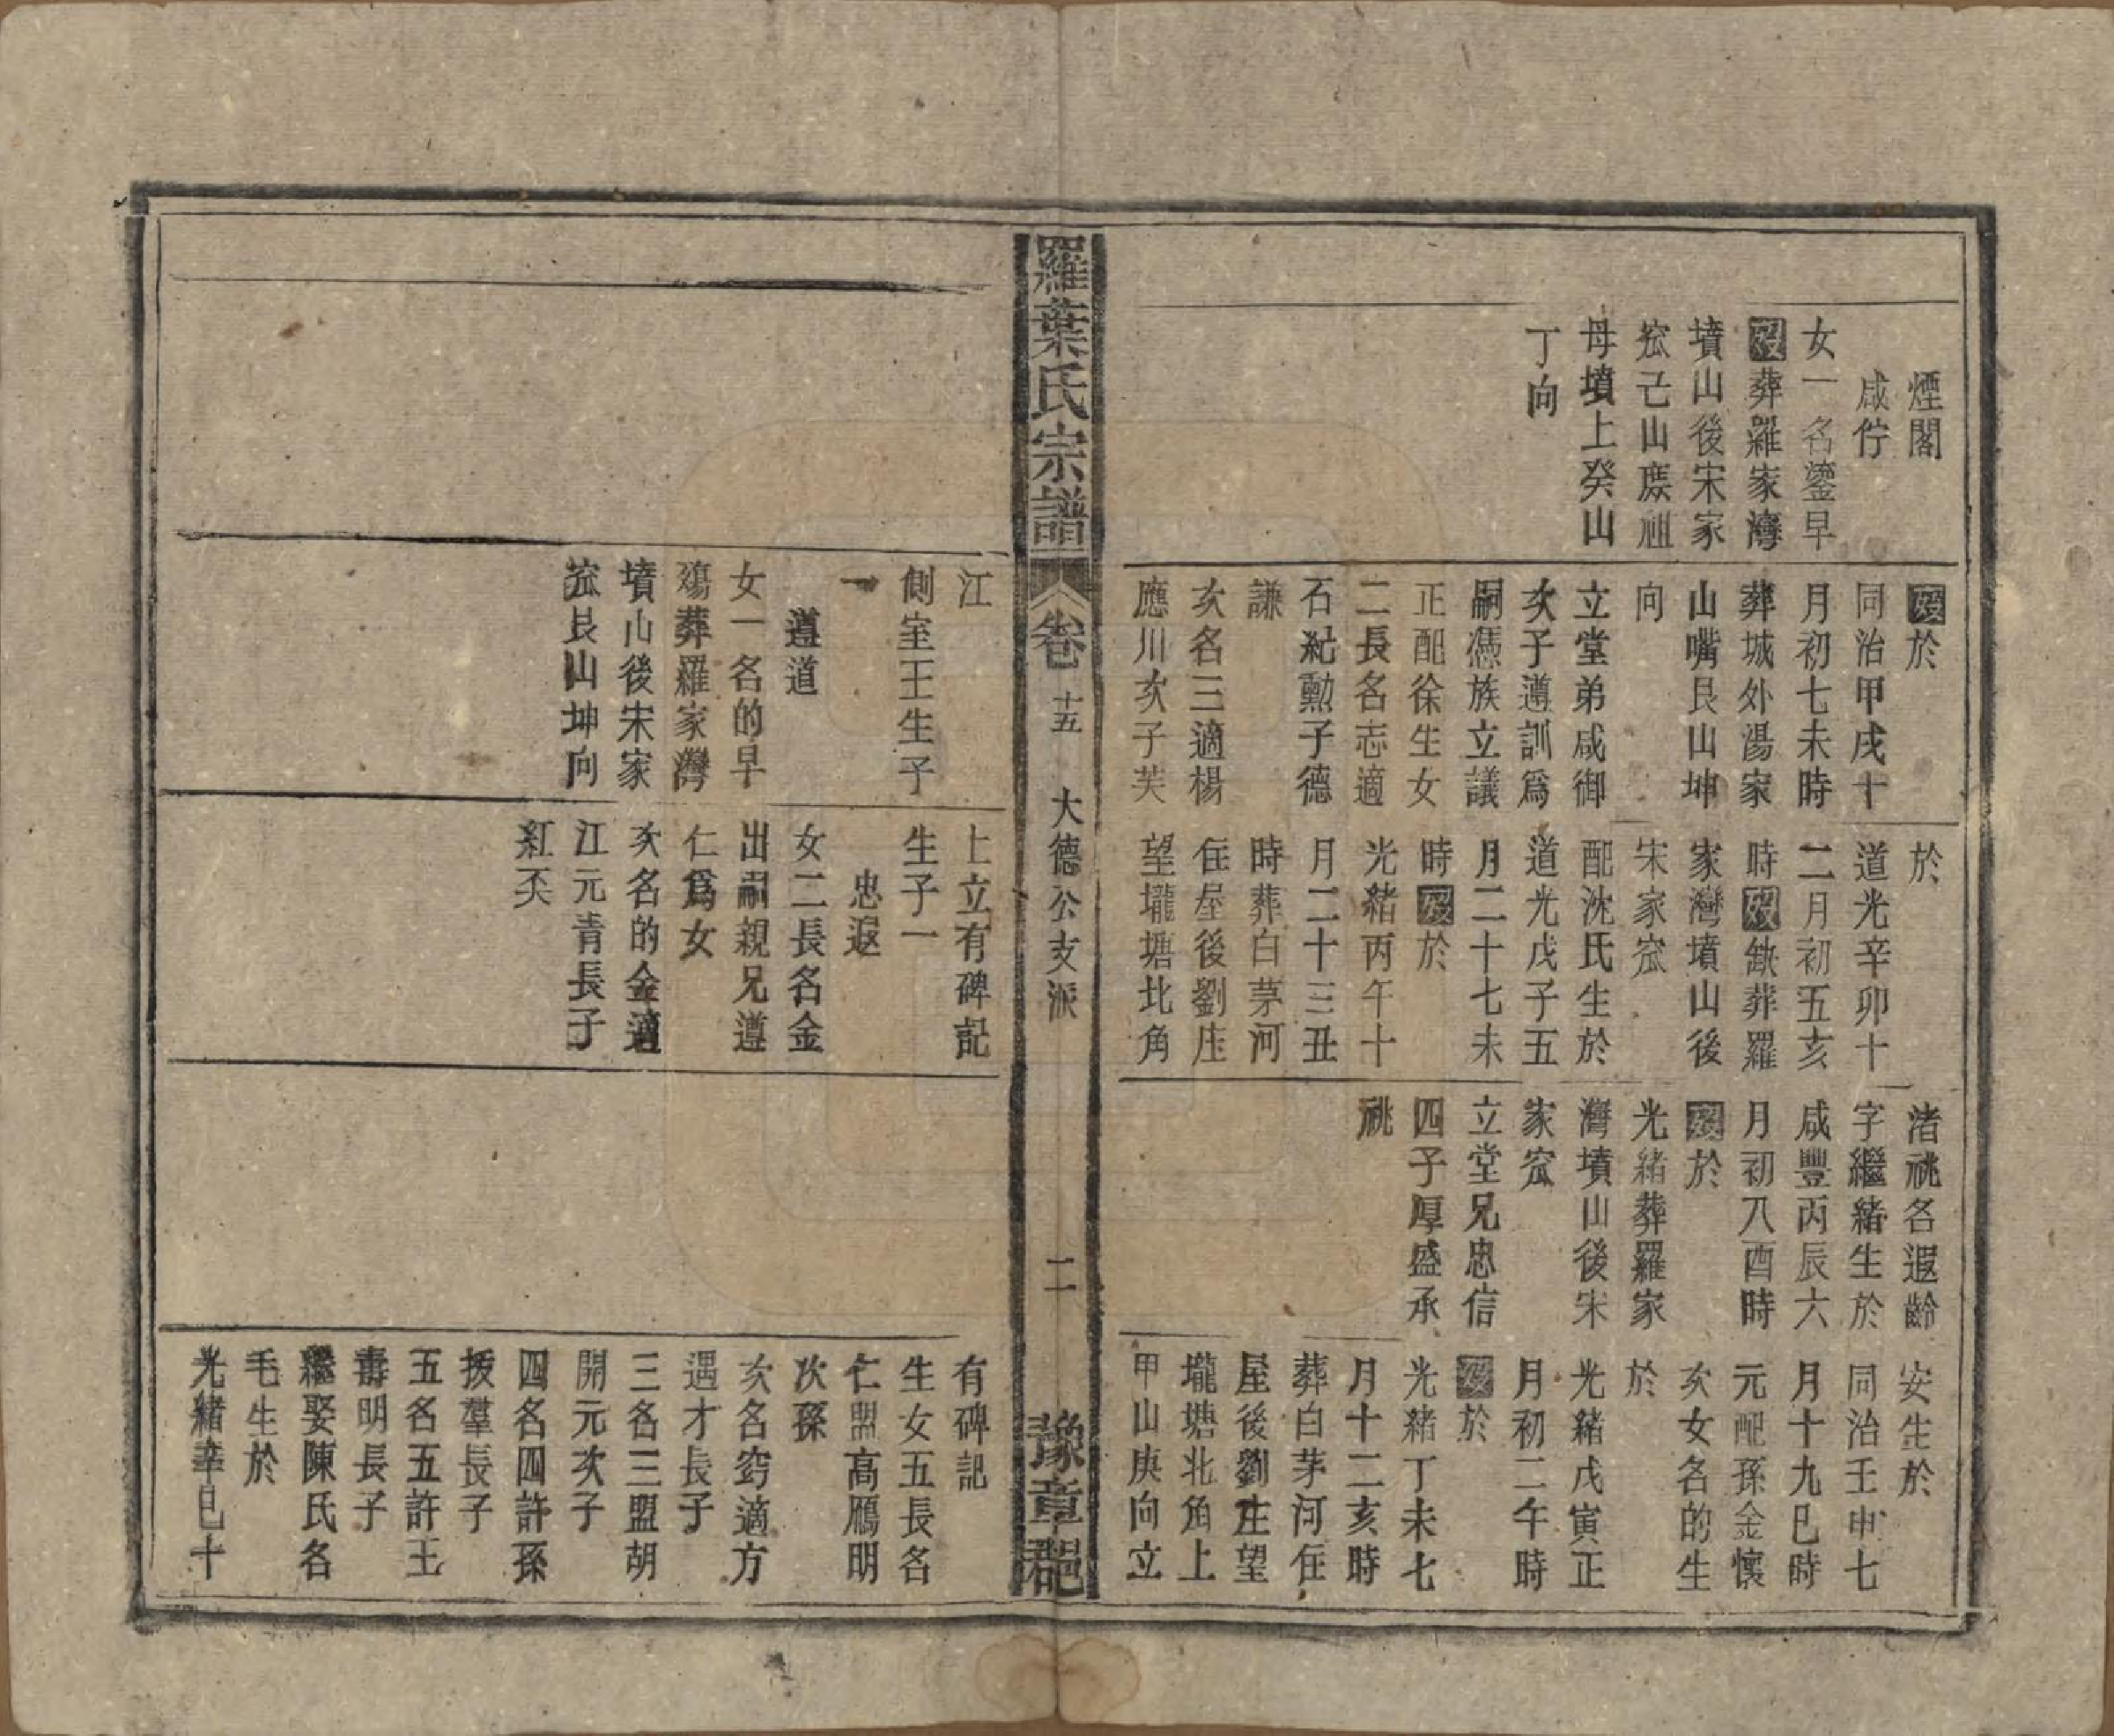 煙閣
咸佇
女一名鎏早
歿葬羅家灣
墳山後宋家
窊己山蔗祖
母墳上癸山
丁向
歿於
同治甲戌十
月初七未時
葬城外湯家
山嘴艮山坤
向
立堂弟咸御
次子遵訓爲
嗣憑族立議
正配徐生女
二長名志適
石紀勳子德
謙
次名三適楊
應川次子芙
於
道光辛卯十
二月初五亥
時歿缺葬羅
家灣墳山後
宋家窊
配沈氏生於
道光戊子五
月二十七未
時歿於
光緒丙午十
月二十三丑
時葬白茅河
住屋後劉庄
望壠塘北角
渚祧名遐齡
字繼緒生於
咸豐丙辰六
月初八酉時
歿於
光緒葬羅家
灣墳山後宋
家窊
立堂兄忠信
四子厚盛承
祧
安生於
同治壬申七
月十九巳時
元配孫金懷
次女名的生
於
光緒戊寅正
月初二午時
歿於
光緒丁未七
月十二亥時
葬白茅河住
屋後劉庄望
壠塘北角上
甲山庚向立
羅葉氏宗譜
卷十五
大德公支派
二
豫章郡
江
側室王生子
一
遵道
女一名的早
殤葬羅家灣
墳山後宋家
窊艮山坤向
上立有碑記
生子一
忠遐
女二長名金
出嗣親兄遵
仁爲女
次名的金適
江元青長子
紅奀
有碑記
生女五長名
仁盟高鴈明
次孫
次名窍適方
遇才長子
三名三盟胡
開元次子
四名四許孫
拔羣長子
五名五許王
壽明長子
繼娶陳氏名
毛生於
光緒辛巳十